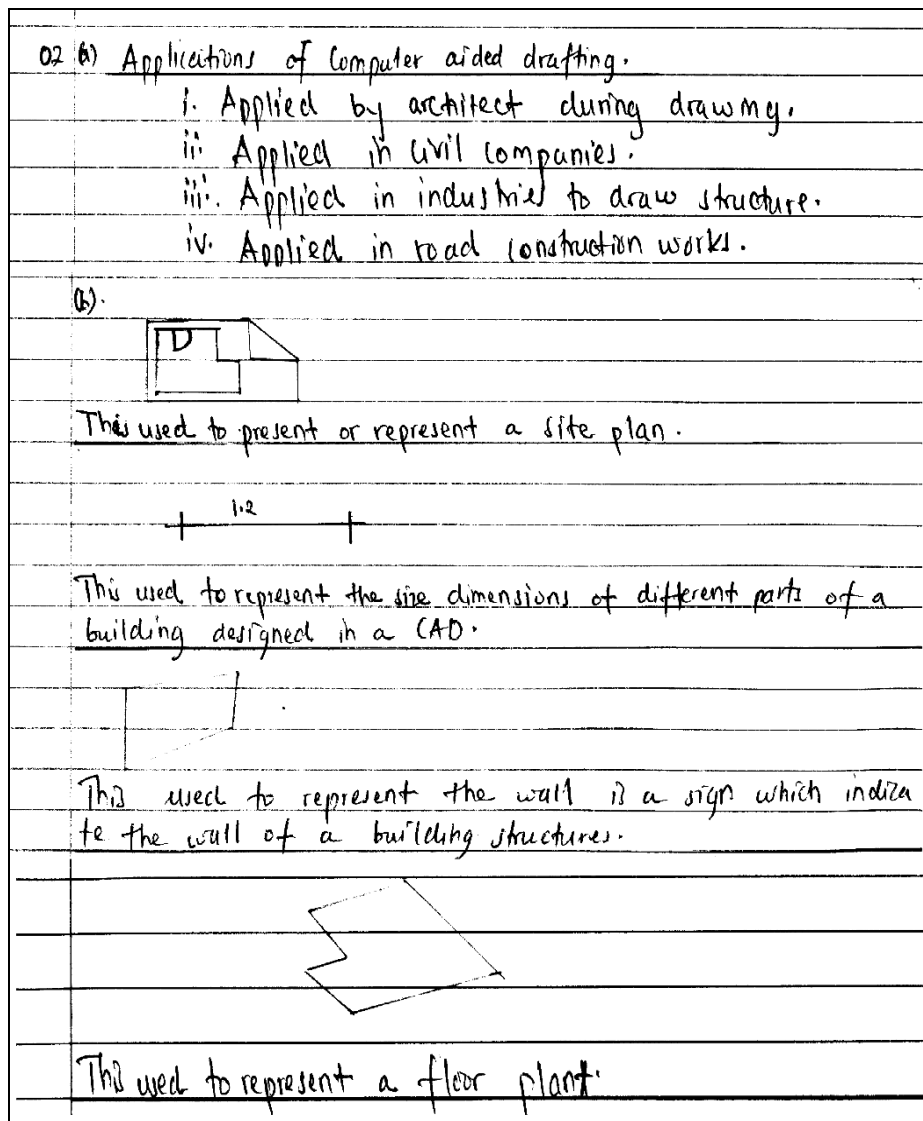 02 (a) Applications of Computer aided drafting.
i. Applied by architect during drawing.
ii. Applied in Civil Companies.
iii. Applied in industries to draw structure.
iv. Applied in road construction works.
(b).
D
This used to present or represent a site plan.
1.2
This used to represent the size dimensions of different parts of a
building designed in a CAD.
This used to represent the wall is a sign which indica
te the wall of a building structures.
This used to represent a floor plant.